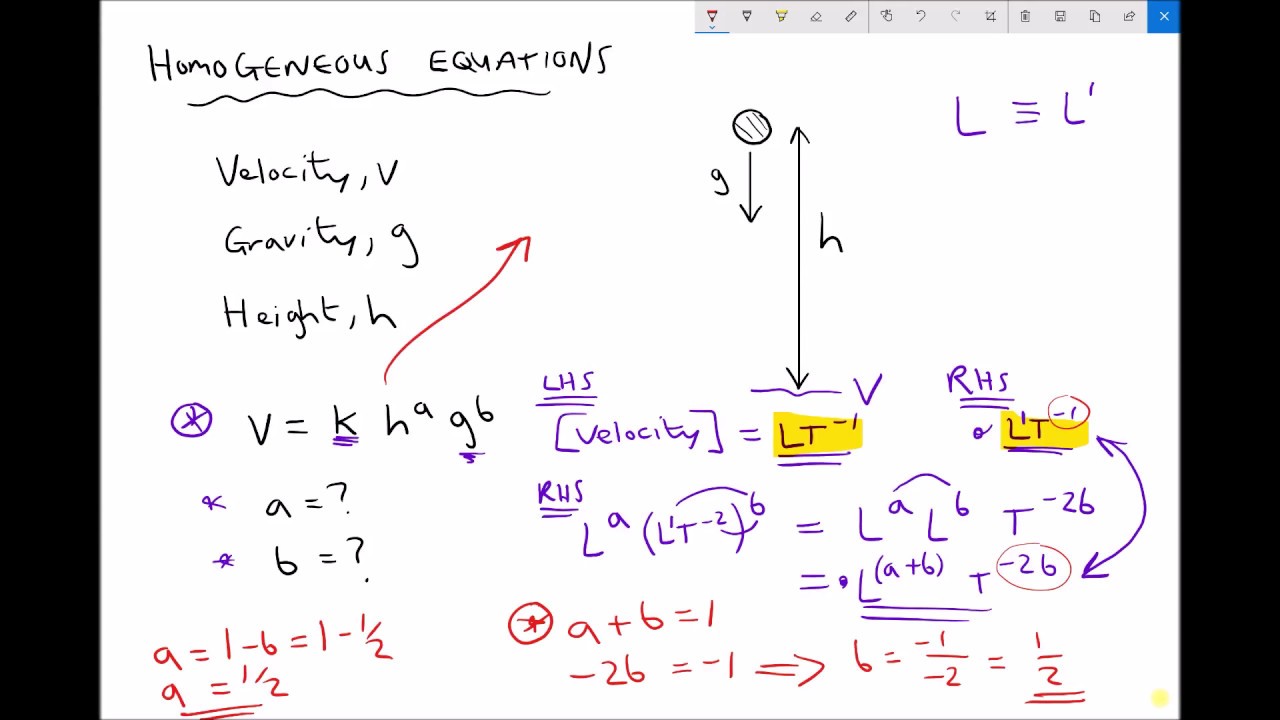 HOMOGENEOUS EQUATIONS
L ≡ L¹
Velocity, v
Gravity, g
Height, h
g
h
V
* V = k hᵃ gᵇ
* a = ?
* b = ?
LHS
[Velocity] = LT⁻¹
RHS
L¹T⁻¹
RHS
Lᵃ (L¹T⁻²)ᵇ = Lᵃ Lᵇ T⁻²ᵇ
= L⁽ᵃ⁺ᵇ⁾ T⁻²ᵇ
* a + b = 1
-2b = -1 ⟹ b = -1/-2 = 1/2
a = 1 - b = 1 - 1/2
a = 1/2